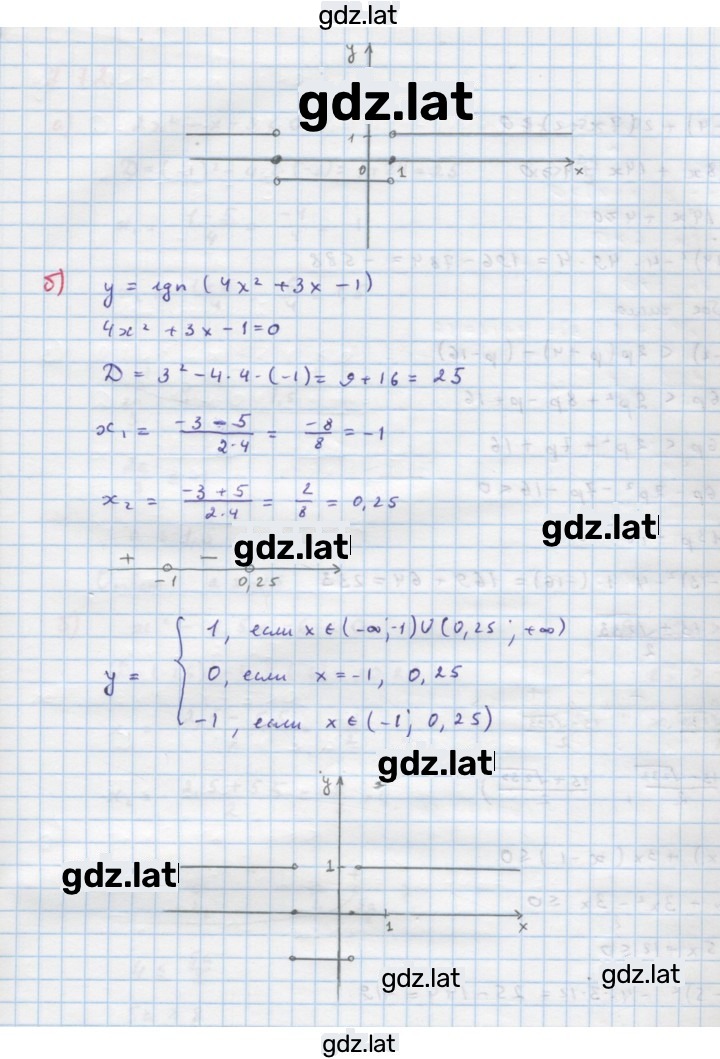 gdz.lat
y
gdz.lat
1
0 1 x
б) y = sgn (4x² + 3x - 1)
4x² + 3x - 1 = 0
D = 3² - 4 · 4 · (-1) = 9 + 16 = 25
x₁ = (-3 - 5)/(2·4) = -8/8 = -1
x₂ = (-3 + 5)/(2·4) = 2/8 = 0,25
gdz.lat
gdz.lat
+ -
-1 0,25
1, если x ∈ (-∞; -1) ∪ (0,25 ; +∞)
y = { 0, если x = -1, 0,25
-1, если x ∈ (-1; 0,25)
gdz.lat
y
gdz.lat
1
1 x
gdz.lat
gdz.lat
gdz.lat